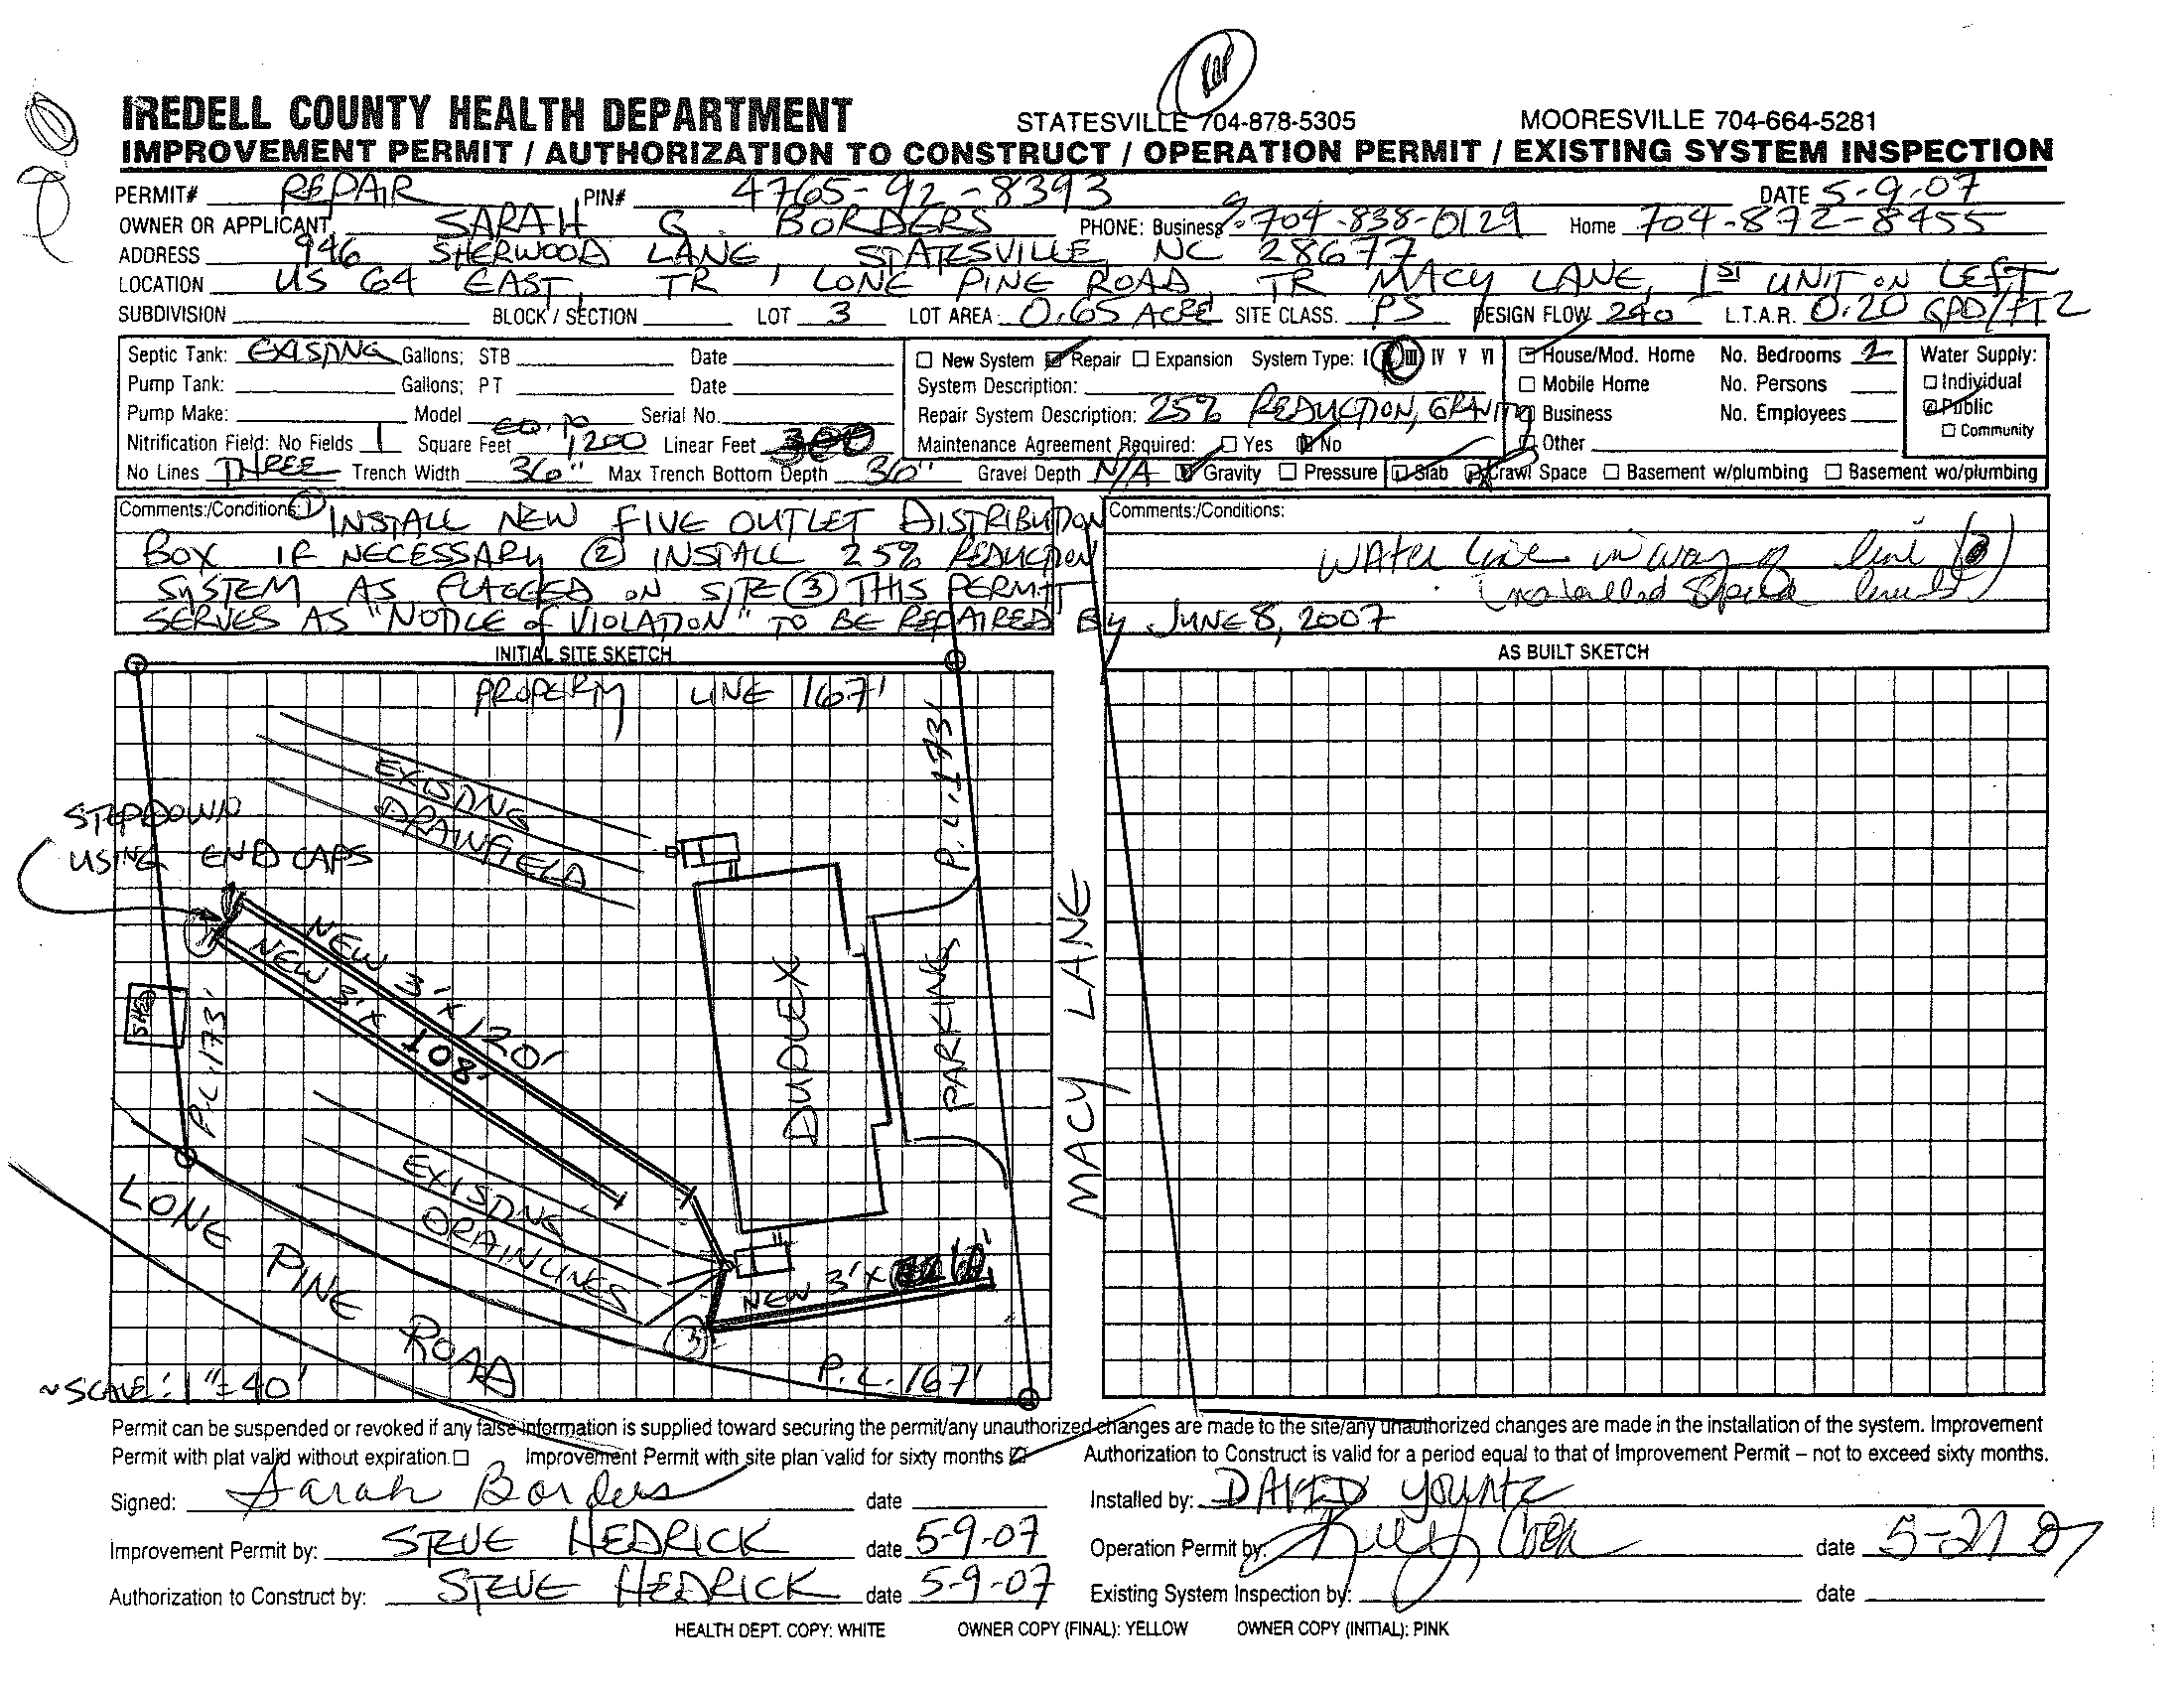 IREDELL COUNTY HEALTH DEPARTMENT STATESVILLE 704-878-5305 MOORESVILLE 704-664-5281
IMPROVEMENT PERMIT / AUTHORIZATION TO CONSTRUCT / OPERATION PERMIT / EXISTING SYSTEM INSPECTION
PERMIT# REPAIR PIN# 4765-92-8393 DATE 5-9-07
OWNER OR APPLICANT SARAH G. BORDERS PHONE: Business 704-838-0129 Home 704-872-8455
ADDRESS 946 SHERWOOD LANE, STATESVILLE, NC 28677
LOCATION US 64 EAST, TR, LONE PINE ROAD, TR MACY LANE, 1ST UNIT ON LEFT
SUBDIVISION BLOCK / SECTION LOT 3 LOT AREA 0.65 ACRE SITE CLASS. PS DESIGN FLOW 240 L.T.A.R. 0.20 GPD/FT2
Septic Tank: EXISTING Gallons; STB Date
Pump Tank: Gallons; PT Date
Pump Make: Model Serial No.
Nitrification Field: No Fields 1 Square Feet 1200 Linear Feet 300
No Lines THREE Trench Width 36" Max Trench Bottom Depth 36" Gravel Depth N/A Gravity Pressure Slab Crawl Space Basement w/plumbing Basement wo/plumbing
New System Repair Expansion System Type: I II III IV V VI
System Description:
Repair System Description: 25% REDUCTION, GRAVITY
Maintenance Agreement Required: Yes No
House/Mod. Home No. Bedrooms 2
Mobile Home No. Persons
Business No. Employees
Other
Water Supply:
Individual
Public
Community
Comments:/Conditions: ① INSTALL NEW FIVE OUTLET DISTRIBUTION
BOX IF NECESSARY ② INSTALL 25% REDUCTION
SYSTEM AS FLAGGED ON SITE ③ THIS PERMIT
SERVES AS "NOTICE of VIOLATION" TO BE REPAIRED By JUNE 8, 2007
Comments:/Conditions:
WATER line in way of line (3)
INITIAL SITE SKETCH
PROPERTY LINE 167'
P.L. 173'
EXISTING
DRAINFIELD
STEPDOWN
USING END CAPS
NEW 3' X 120'
NEW 3' X 108'
SHED
P.L. 173'
DUPLEX
PARKING
MACY LANE
EXISTING
DRAINLINES
NEW 3' X
LONE PINE ROAD
P.L. 167'
~SCALE: 1"=40'
AS BUILT SKETCH
Permit can be suspended or revoked if any false information is supplied toward securing the permit/any unauthorized changes are made to the site/any unauthorized changes are made in the installation of the system. Improvement
Permit with plat valid without expiration. Improvement Permit with site plan valid for sixty months Authorization to Construct is valid for a period equal to that of Improvement Permit – not to exceed sixty months.
Signed: Sarah Borders date
Improvement Permit by: STEVE HEDRICK date 5-9-07
Authorization to Construct by: STEVE HEDRICK date 5-9-07
Installed by: DAVID YOUNTZ
Operation Permit by: date 5-21 07
Existing System Inspection by: date
HEALTH DEPT. COPY: WHITE OWNER COPY (FINAL): YELLOW OWNER COPY (INITIAL): PINK